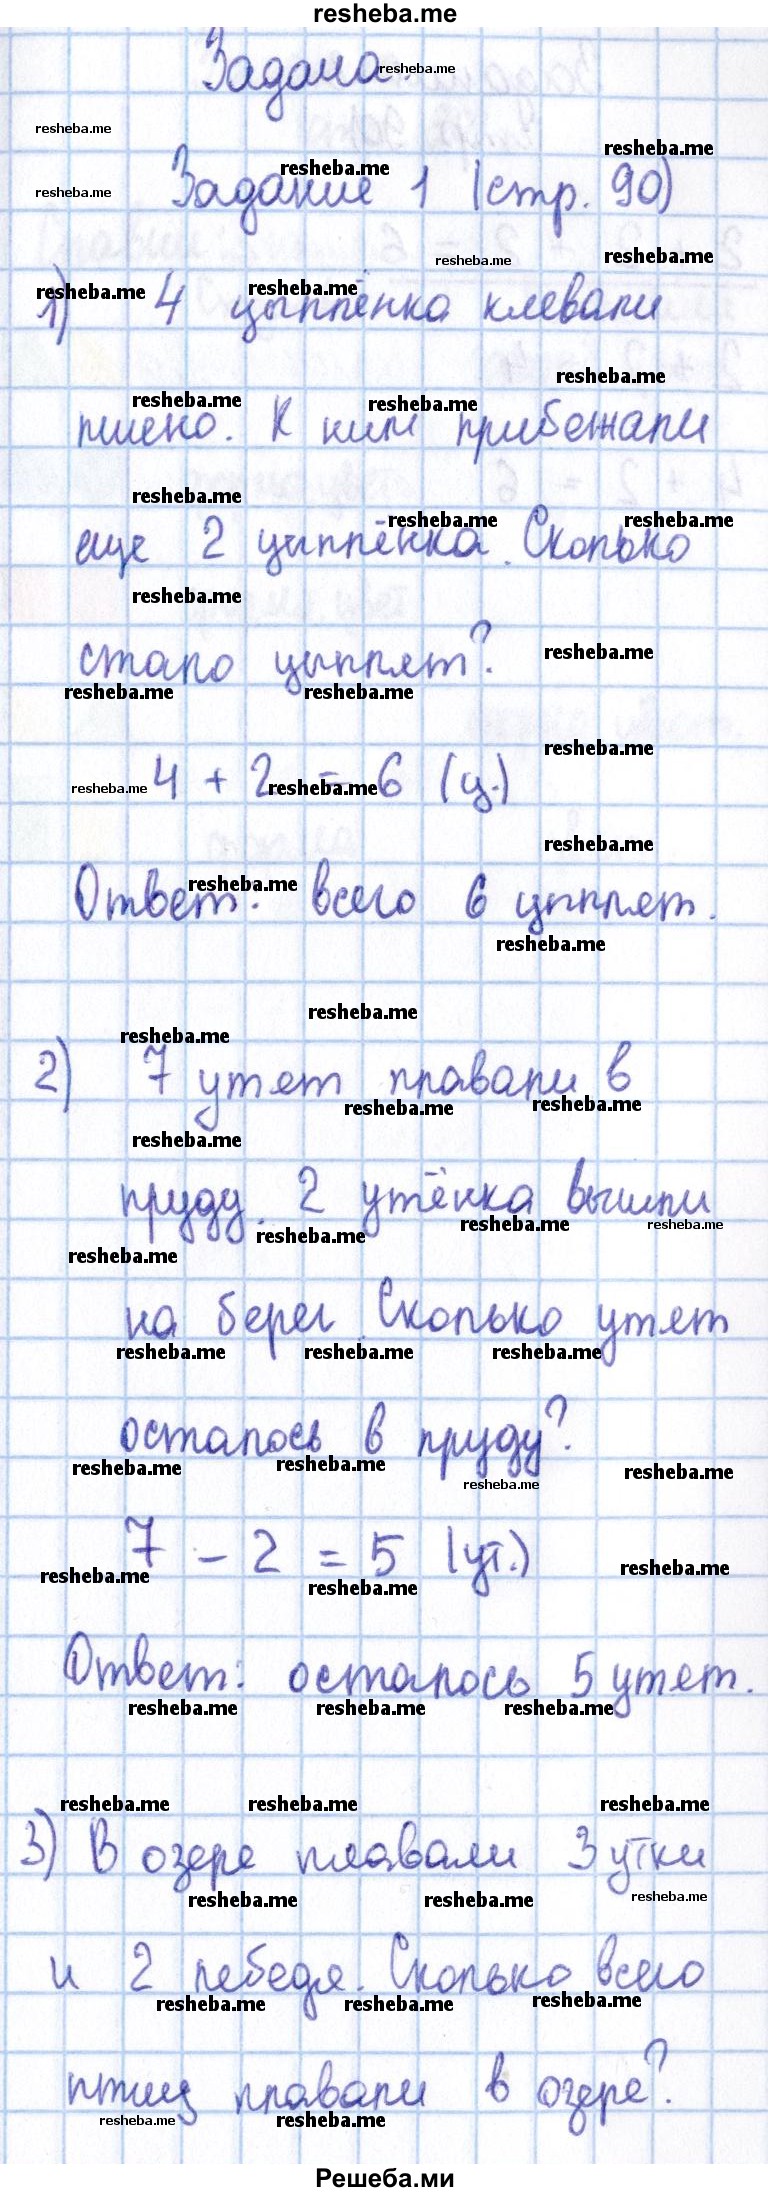 resheba.me
Задача.
Задание 1 (стр. 90)
1) 4 цыплёнка клевали
пшено. К ним прибежали
еще 2 цыплёнка. Сколько
стало цыплят?
4 + 2 = 6 (ц.)
Ответ: всего 6 цыплят.
2) 7 утят плавали в
пруду. 2 утёнка вышли
на берег. Сколько утят
осталось в пруду?
7 - 2 = 5 (ут.)
Ответ: осталось 5 утят.
3) В озере плавали 3 утки
и 2 лебедя. Сколько всего
птиц плавали в озере?
Решеба.ми